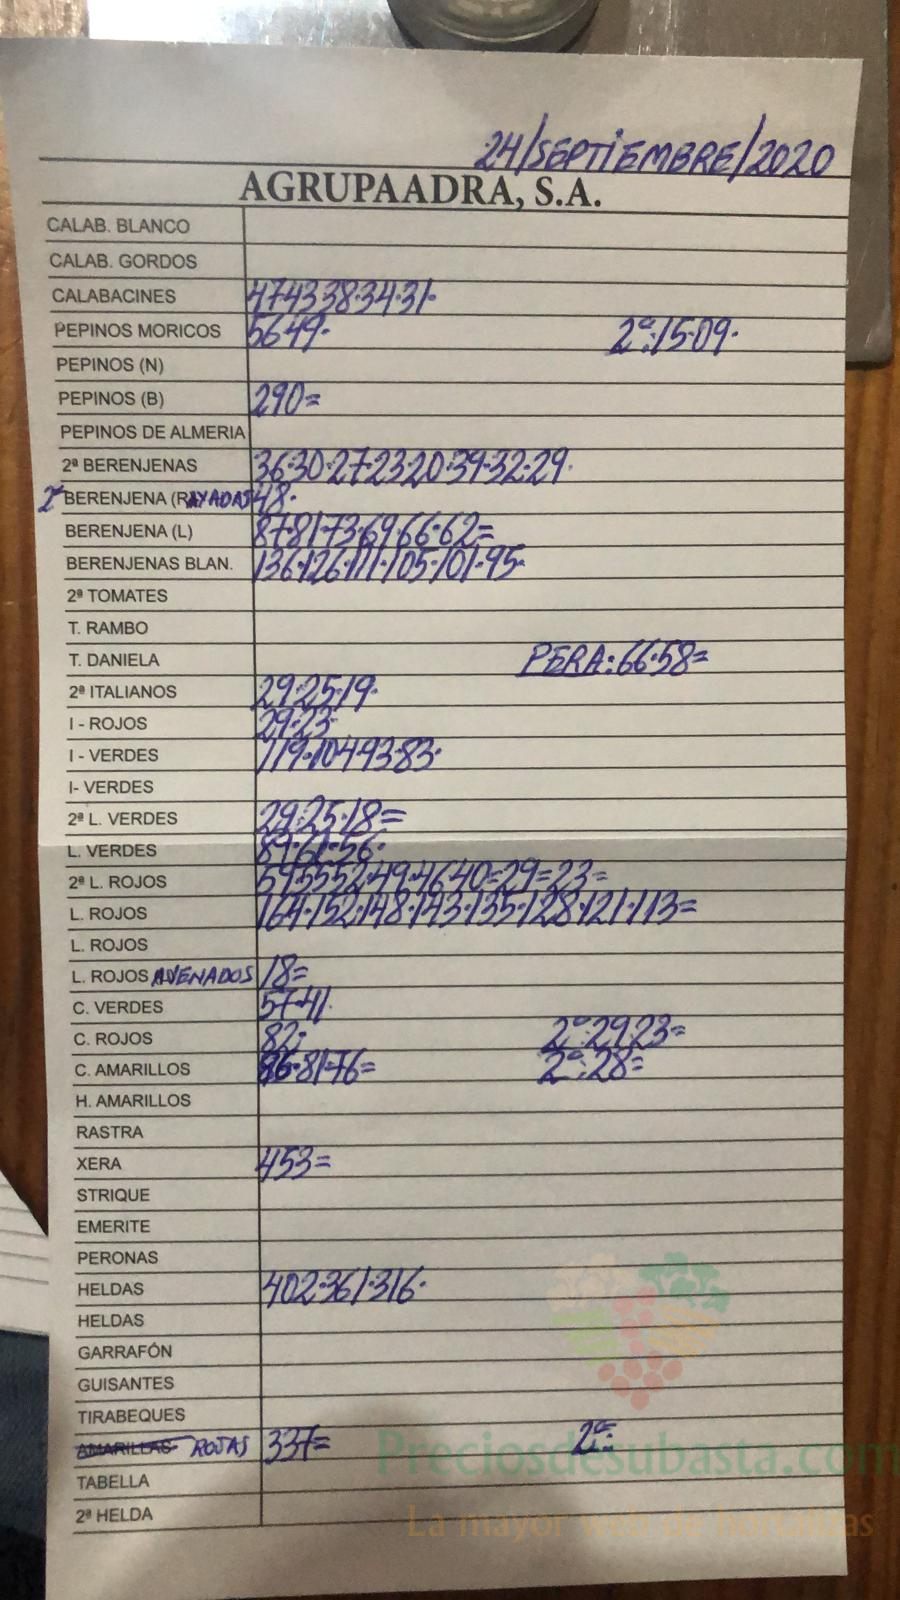 24/SEPTIEMBRE/2020
AGRUPAADRA, S.A.
CALAB. BLANCO
CALAB. GORDOS
CALABACINES 47·43·38·34·31·
PEPINOS MORICOS 56·49· 2ª:15·09·
PEPINOS (N)
PEPINOS (B) 290=
PEPINOS DE ALMERIA
2ª BERENJENAS 36·30·27·23·20·39·32·29·
2ª BERENJENA (RAYADAS 48·
BERENJENA (L) 87·81·73·69·66·62=
BERENJENAS BLAN. 136·126·111·105·101·95·
2ª TOMATES
T. RAMBO
T. DANIELA PERA:66·58=
2ª ITALIANOS 29·25·19·
I - ROJOS 29·23·
I - VERDES 119·104·93·83·
I- VERDES
2ª L. VERDES 29·25·18=
L. VERDES 89·61·56·
2ª L. ROJOS 59·55·52·49·46·40=29=23=
L. ROJOS 164·152·148·143·135·128·121·113=
L. ROJOS
L. ROJOS AVENADOS 18=
C. VERDES 57·41·
C. ROJOS 82· 2ª:29·23=
C. AMARILLOS 86·81·76= 2ª:28=
H. AMARILLOS
RASTRA
XERA 453=
STRIQUE
EMERITE
PERONAS
HELDAS 402·361·316·
HELDAS
GARRAFÓN
GUISANTES
TIRABEQUES
AMARILLAS ROJAS 337= 2ª:
Preciosdesubasta.com
TABELLA
2ª HELDA
La mayor web de hortalizas